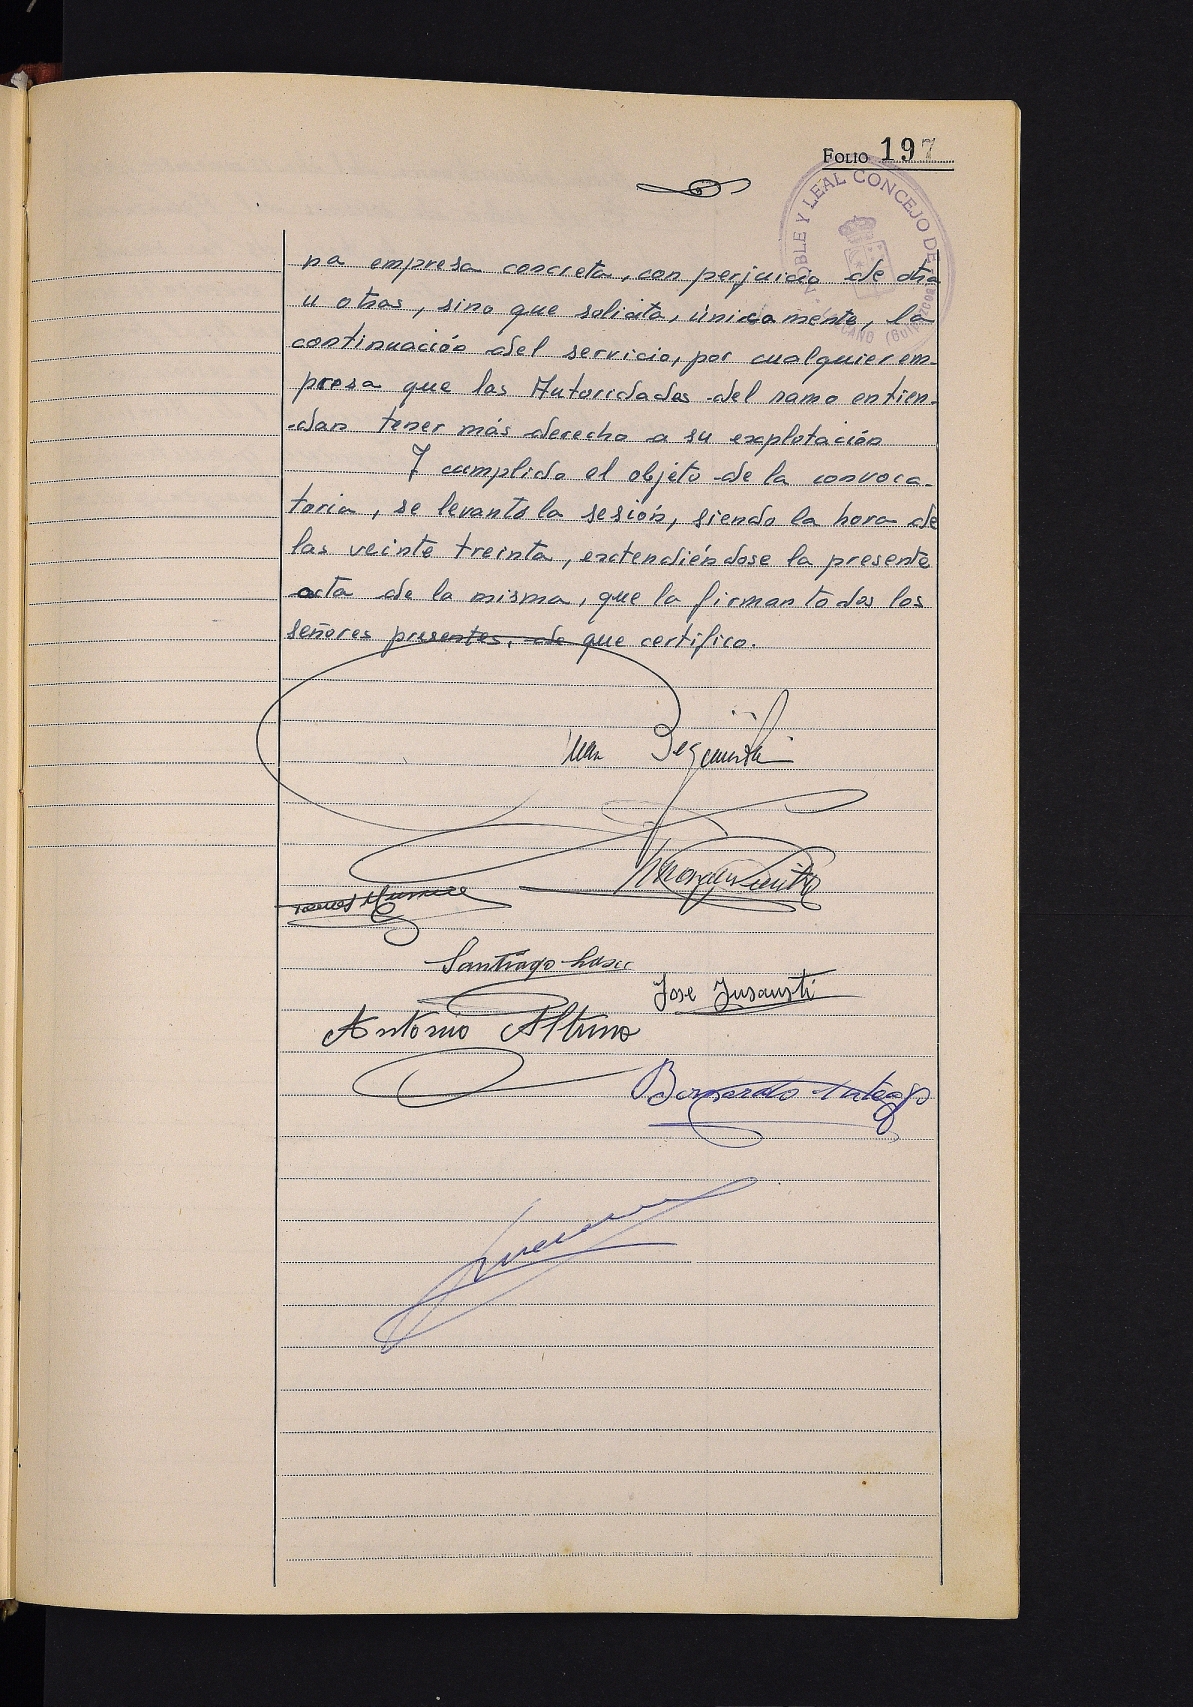 FOLIO 197
NOBLE Y LEAL CONCEJO DE
na empresa concreta, con perjuicio de otra
u otras, sino que solicita, únicamente, la
continuación del servicio, por cualquier em-
presa que las Autoridades del ramo entien-
dan tener más derecho a su explotación
Y cumplido el objeto de la convoca-
toria, se levantó la sesión, siendo la hora de
las veinte treinta, extendiéndose la presente
acta de la misma, que la firman todos los
señores presentes, de que certifico.
Juan
Santiago Lasa
Jose Insausti
Antonio Altuna
Bernardo